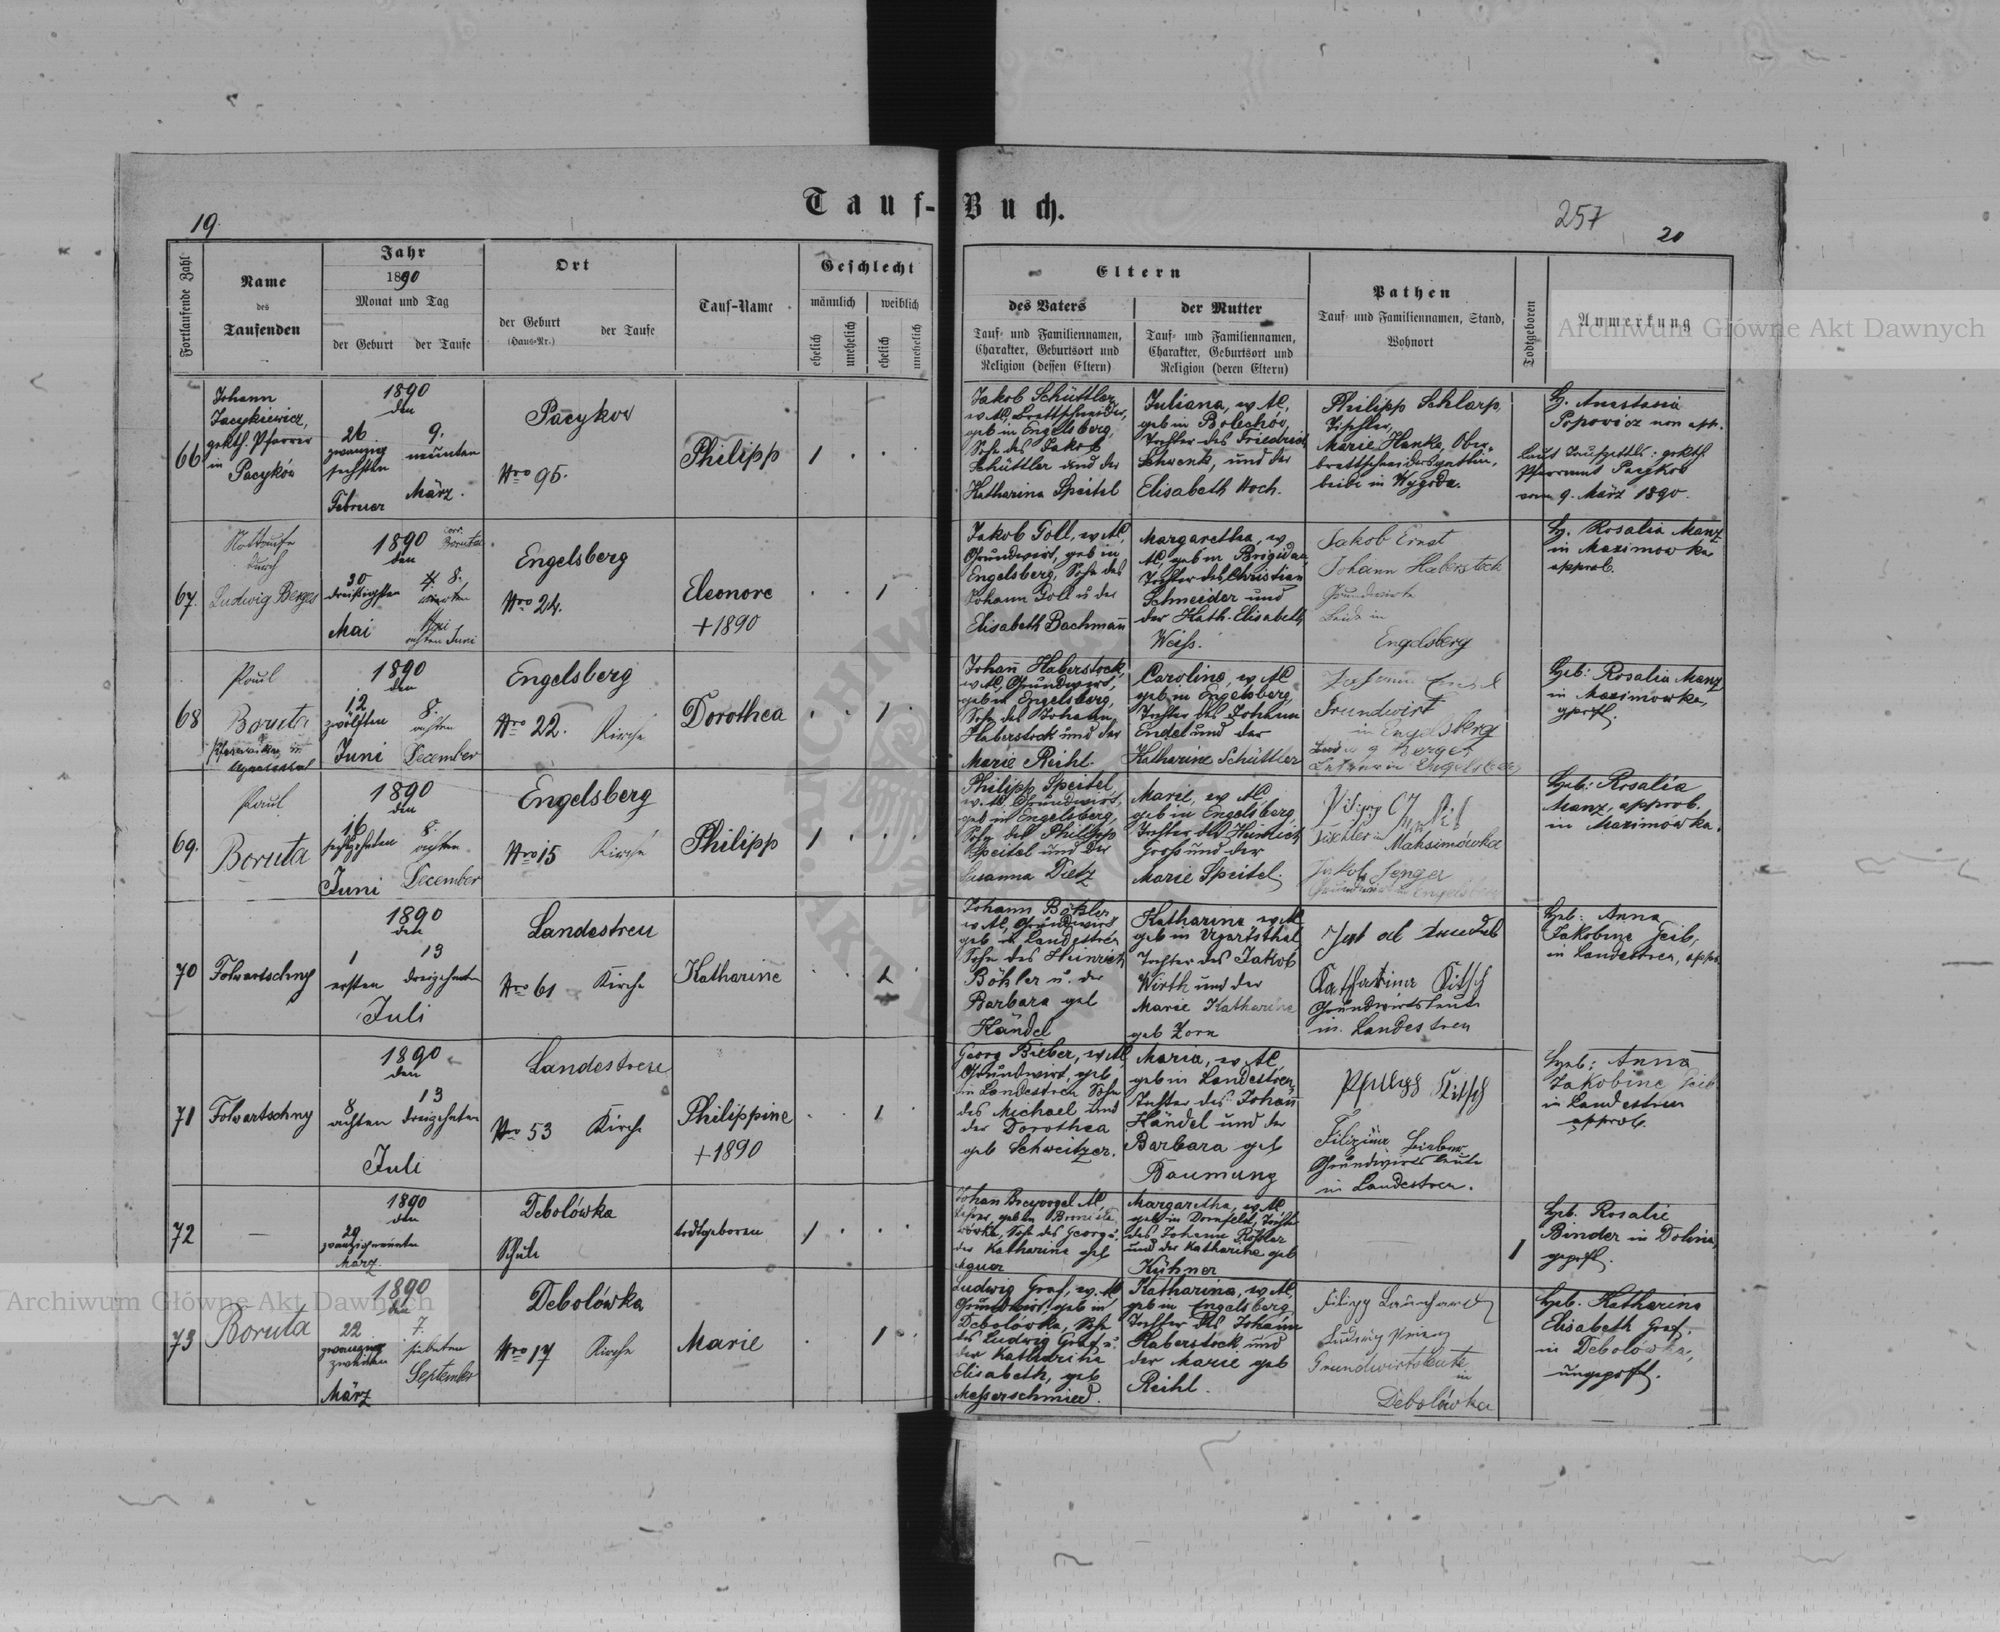 Tauf-Buch.
19.
257
20
Fortlaufende Zahl
Name
des
Taufenden
Jahr
1890
Monat und Tag
der Geburt
der Taufe
Ort
der Geburt
(Haus-Nr.)
der Taufe
Tauf-Name
Geschlecht
männlich
weiblich
ehelich
unehelich
ehelich
unehelich
Eltern
des Vaters
Tauf- und Familiennamen,
Charakter, Geburtsort und
Religion (dessen Eltern)
der Mutter
Tauf- und Familiennamen,
Charakter, Geburtsort und
Religion (deren Eltern)
Pathen
Tauf- und Familiennamen, Stand,
Wohnort
Todtgeboren
Anmerkung
Archiwum Główne Akt Dawnych
66
Johann
Jacykiewicz,
grkth. Pfarrer
in
Pacyków
1890
den
26
zwanzig
sechsten
Februer
9.
neunten
März.
Pacykov
Nro 95.
Philipp
1
Jakob Schüttler,
w AC, Brettschneider,
geb in Engelsberg,
Sohn des Jakob
Schüttler und der
Katharina Speitel
Juliana, w AC,
geb in Bolechóv,
Tochter des Friedrich
Schwenk, und der
Elisabeth Koch.
Philipp Schlarp,
Tischler,
Marie Hanke, Ober-
brettschneidersgattin,
beide in Wygoda.
H. Anastasia
Popowicz non app.
laut Taufzettls: grkth
Pfarramt Pacykov
vom 9. März 1890.
67
Nottaufe
durch
Ludwig Berges
1890
den
corr.
Boruta
30
dreißigsten
Mai
8.
achten Juni
Engelsberg
Nro 24.
Eleonore
+1890
1
Jakob Goll, w AC,
Grundwirt, geb in
Engelsberg, Sohn des
Johann Goll u der
Elisabeth Bachmann
Margaretha, w
AC, geb in Brigidau,
Tochter des Christian
Schneider und
der Kath. Elisabeth
Weiß.
Jakob Ernst
Johann Haberstock
Grundwirte
beide in
Engelsberg
H. Rosalia Manz
in Maximowka
approb.
68
Paul
Boruta
1890
den
12
zwölften
Juni
8.
achten
December
Engelsberg
Nro 22.
Kirche
Dorothea
1
Johann Haberstock,
w AC, Grundwirt,
geb in Engelsberg,
Sohn des Johann
Haberstock und der
Marie Reihl.
Carolina, w AC
geb in Engelsberg,
Tochter des Johann
Endel und der
Katharine Schüttler
Grundwirt
in Engelsberg
Ludwig Berges
Lehrer in Engelsberg
Heb: Rosalia Manz
in Maximowka,
gprft.
69.
Paul
Boruta
1890
den
16
sechzehnten
Juni
8.
achten
December
Engelsberg
Nro 15
Kirche
Philipp
1
Philipp Speitel
w. AC, Grundwirt,
geb in Engelsberg,
Sohn des Philipp
Speitel und der
Susanna Dietz
Marie, w AC
geb in Engelsberg,
Tochter des Heinrich
Groß und der
Marie Speitel.
Tischler in Maksimówka
Jakob Senger
Heb: Rosalia
Manz, approb.
in Maximówka.
70
Folwartschny
1890
den
1
ersten
13
dreizehnten
Juli
Landestreu
Nro 61
Kirche
Katharine
1
Johann Böhler,
w AC, Grundwirt,
geb in Landestreu
Sohn des Heinrich
Böhler u. der
Barbara geb
Händel
Katharina w AC
geb in Ugartsthal,
Tochter des Jakob
Wirth und der
Marie Katharine
geb Zorn
Katharina Kitsch
Grundwirtsleute
in Landestreu
Heb: Anna
Jakobine Geib,
in Landestreu, appr.
71
Folwartschny
1890
den
8
achten
13
dreizehnten
Juli
Landestreu
Nro 53
Kirche
Philippine
+1890
1
Georg Bieber, w AC,
Grundwirt, geb
in Landestreu Sohn
des Michael und
der Dorothea
geb Schweitzer.
Maria, w AC
geb in Landestreu,
Tochter des Johann
Händel und der
Barbara geb
Baumung
Philipp Kitsch
Grundwirtsleute
in Landestreu.
Heb: Anna
Jakobine Geib
in Landestreu
approb.
72
—
1890
den
29
zwanzigneunten
März.
Debolówka
Schule
todtgeboren
1
Margaretha, w AC
geb in Dornfeld, Tochter
des Johann Köhler
und der Katharine geb
Kühner
1
Heb. Rosalie
Binder in Dolina,
geprft.
73
Boruta
1890
den
22
zwanzig
zweiten
März
7.
siebenten
September
Debolówka
Nro 17
Kirche
Marie
1
Ludwig Graf, w. AC
Grundwirt, geb in
Debolówka, Sohn
des Ludwig Graf u.
der Katharina
Elisabeth, geb
Messerschmied.
Katharina, w AC,
geb in Engelsberg
Tochter des Johann
Haberstock und
der Marie geb
Reihl.
Grundwirtsleute
in
Debolówka
Heb. Katharina
Elisabeth Graf,
in Debolowka,
ungeprft.
Archiwum Główne Akt Dawnych